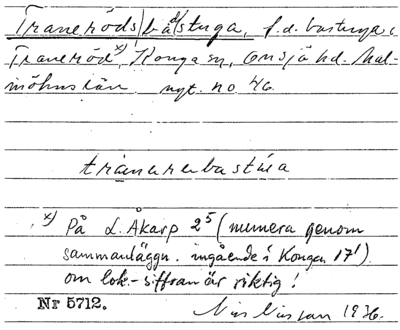 Traneröds båstuga, f.d. bastuga i
Traneröd x), Konga sn, Onsjö hd. Mal-
möhus län nyt. no. 46.
tránarenbastúa
x) På L. Åkarp 2⁵ (numera genom
sammanläggn. ingående i Konga 17¹)
om lok-siffran är riktig!
Nr 5712. Nils Nilsson 1936.